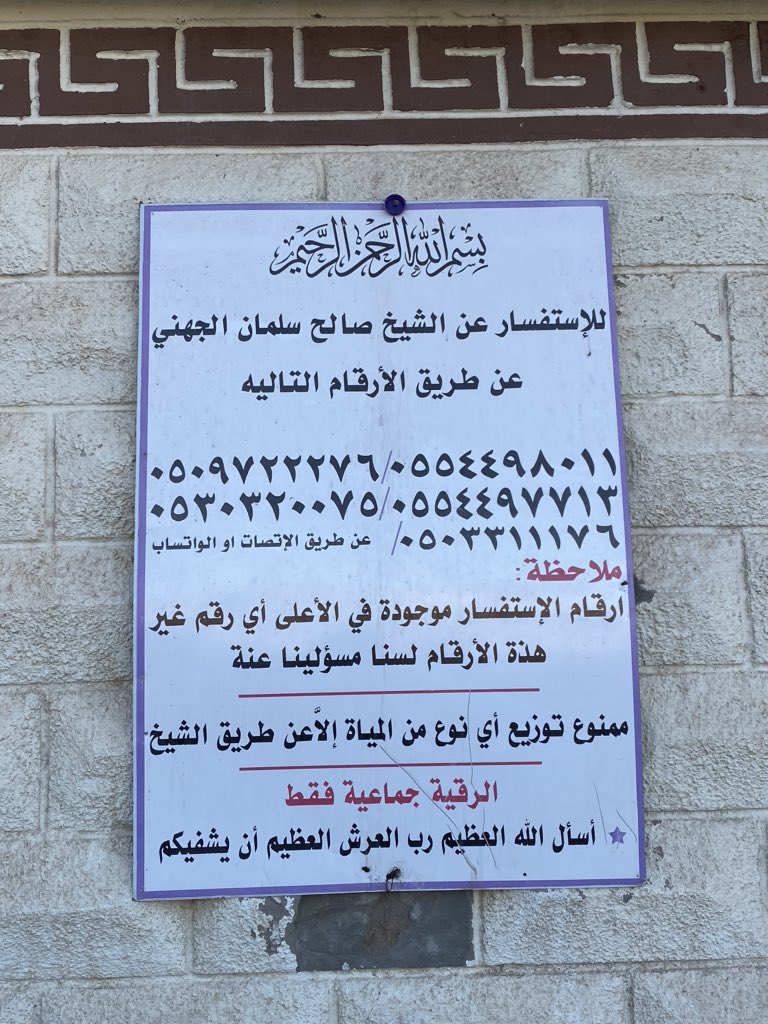 بسم الله الرحمن الرحيم
للإستفسار عن الشيخ صالح سلمان الجهني
عن طريق الأرقام التاليه
٠٥٥٤٤٩٨٠١١/٠٥٠٩٧٢٢٢٧٦
٠٥٥٤٤٩٧٧١٣/٠٥٣٠٣٢٠٠٧٥
٠٥٠٣٣١١١٧٦/ عن طريق الإتصات او الواتساب
ملاحظة:
ارقام الإستفسار موجودة في الأعلى أي رقم غير
هذة الأرقام لسنا مسؤلينا عنة
ممنوع توزيع أي نوع من المياة إلاَّعن طريق الشيخ
الرقية جماعية فقط
★ أسأل الله العظيم رب العرش العظيم أن يشفيكم